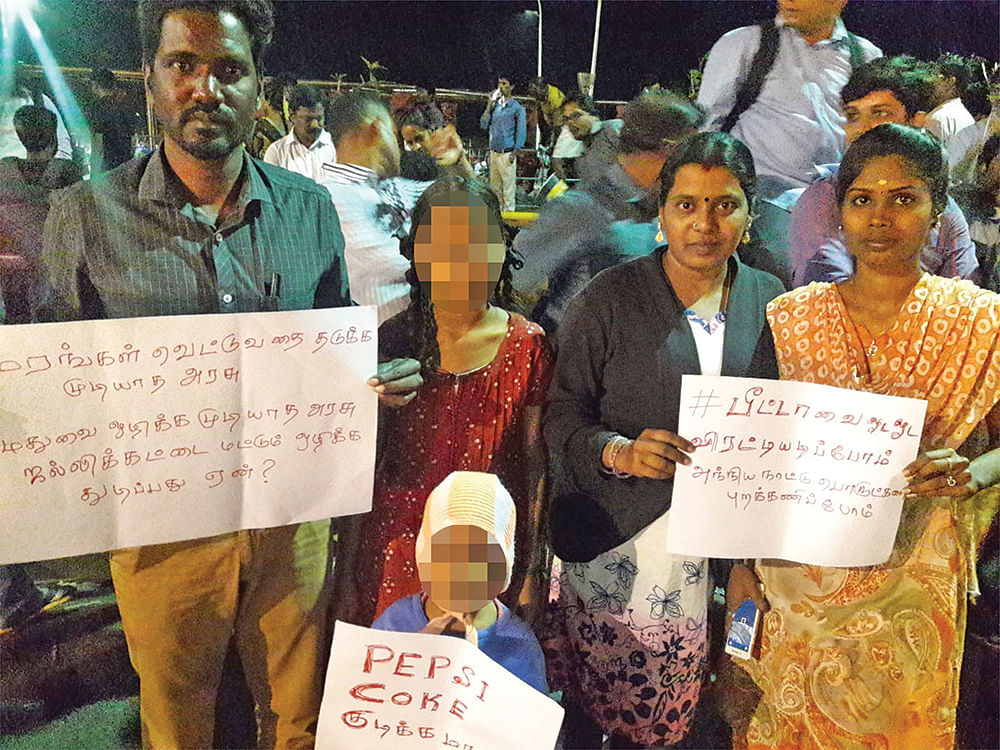 மரங்கள் வெட்டுவதை தடுக்க
முடியாத அரசு
மதுவை ஒழிக்க முடியாத அரசு
ஜல்லிக்கட்டை மட்டும் ஒழிக்க
துடிப்பது ஏன்?
#பீட்டாவை ஓட ஓட
விரட்டியடிப்போம்
அந்நிய நாட்டு
புறக்கணிப்போம்
PEPSI
COKE